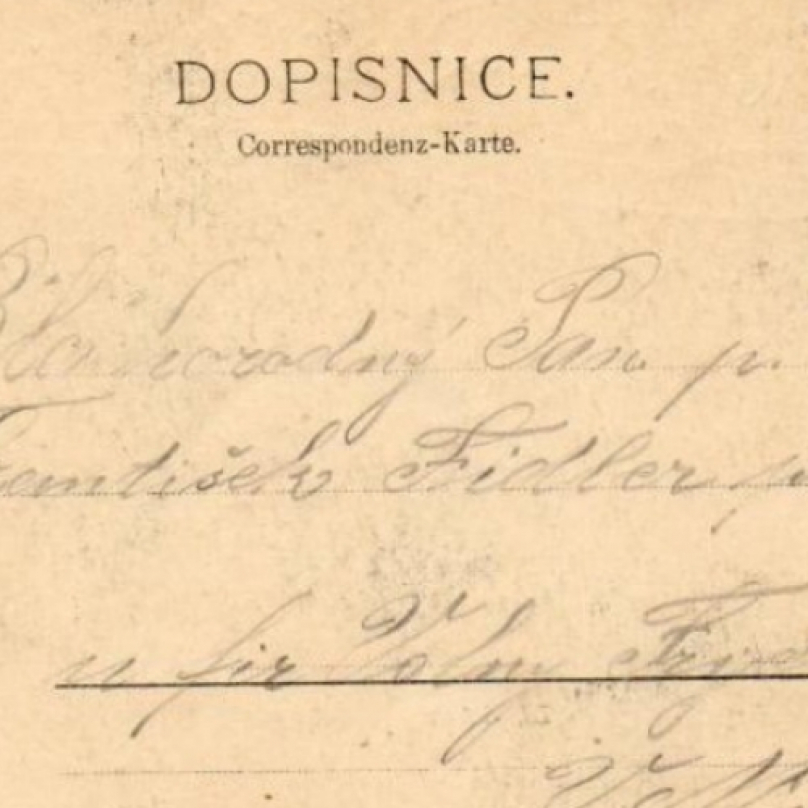 DOPISNICE.
Correspondenz-Karte.
Blahorodný Pan p.
František Fidler
u fir Volný